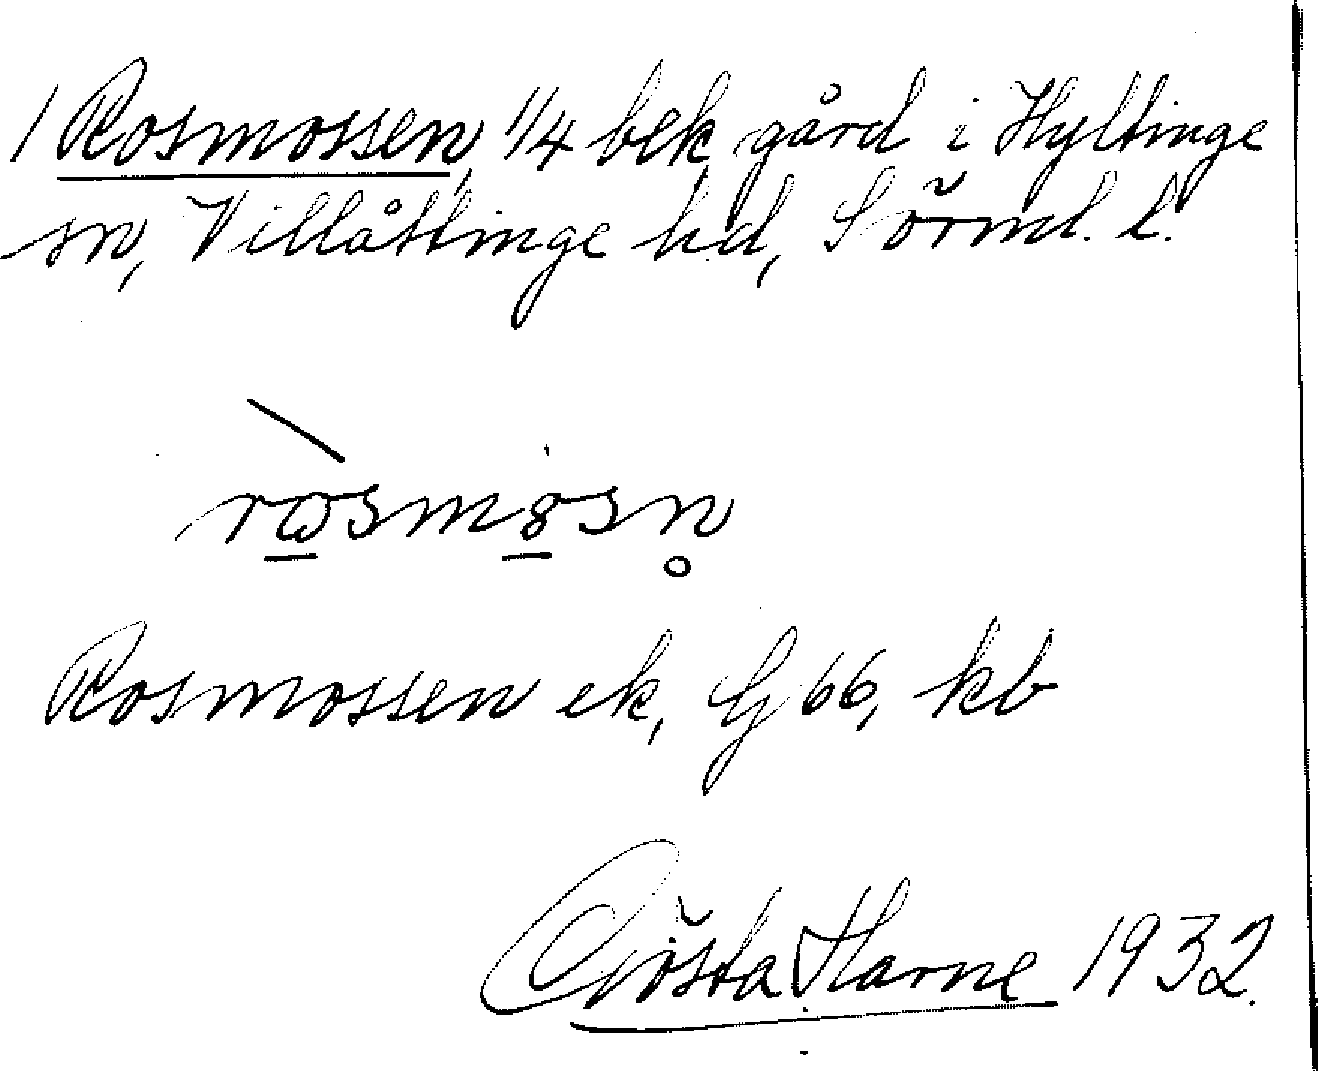 1 Rosmossen, 1/4 bek gård i Hyltinge
sn, Villåttinge hd, Sörml. l.
ròsmòsn̥
Rosmossen ek, G 66, kb
Gösta Harne 1932.